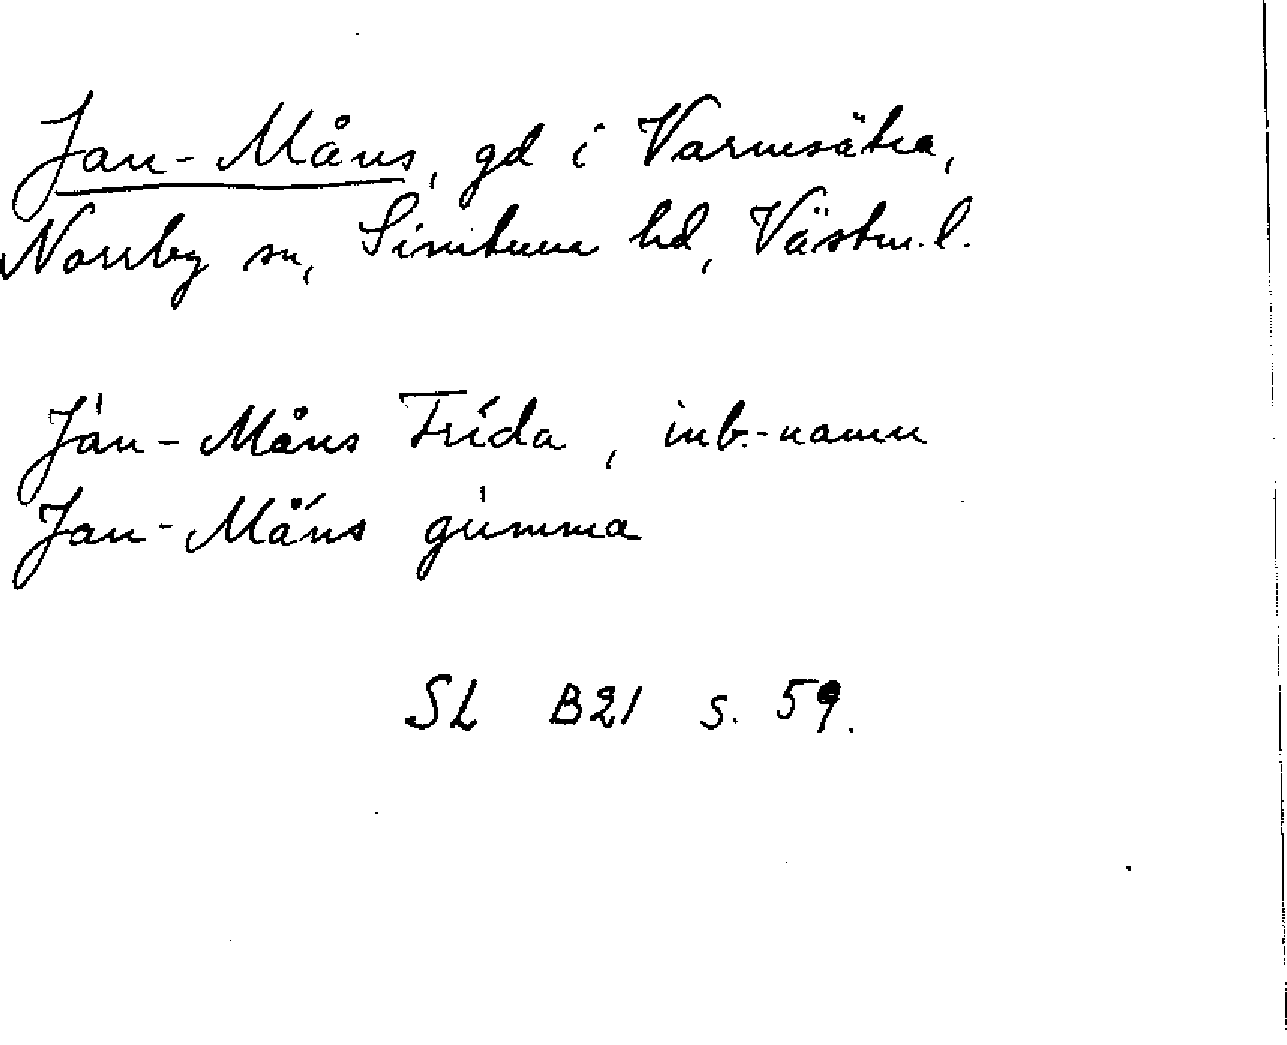 Jan-Måns, gd i Varmsätra,
Norrby sn, Simtuna hd, Västm. l.
Ján-Måns Frída, inb.-namn
Jan-Mǻns gúmma
SL B21 s. 59.